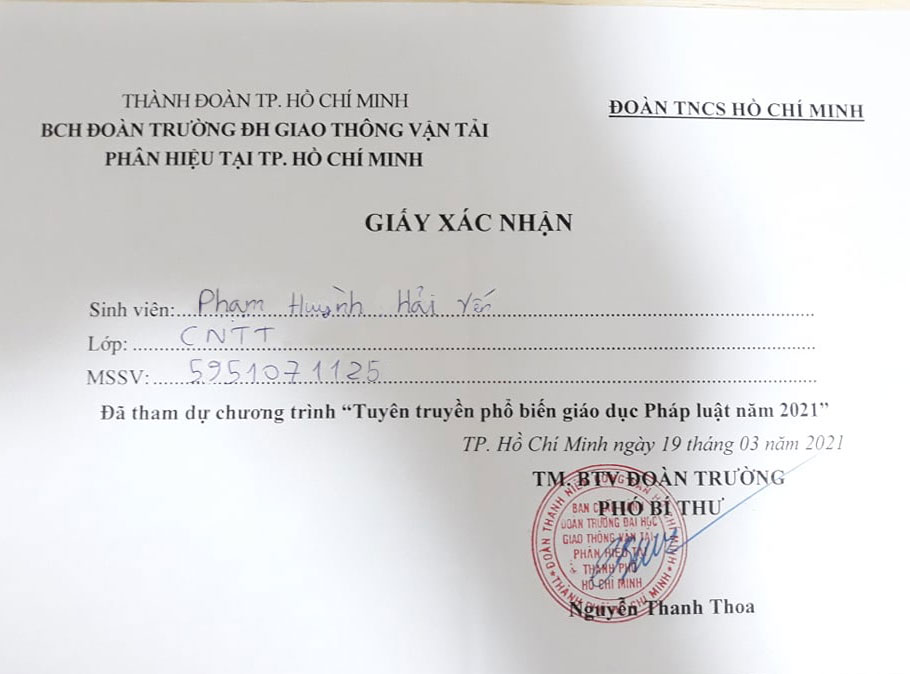 THÀNH ĐOÀN TP. HỒ CHÍ MINH
BCH ĐOÀN TRƯỜNG ĐH GIAO THÔNG VẬN TẢI
PHÂN HIỆU TẠI TP. HỒ CHÍ MINH
ĐOÀN TNCS HỒ CHÍ MINH
GIẤY XÁC NHẬN
Sinh viên: Phạm Huỳnh Hải Yến
Lớp: CNTT
MSSV: 5951071125
Đã tham dự chương trình “Tuyên truyền phổ biến giáo dục Pháp luật năm 2021”
TP. Hồ Chí Minh ngày 19 tháng 03 năm 2021
TM. BTV ĐOÀN TRƯỜNG
PHÓ BÍ THƯ
BAN CHẤP HÀNH
ĐOÀN TRƯỜNG ĐẠI HỌC
GIAO THÔNG VẬN TẢI
PHÂN HIỆU TẠI
THÀNH PHỐ
HỒ CHÍ MINH
Nguyễn Thanh Thoa